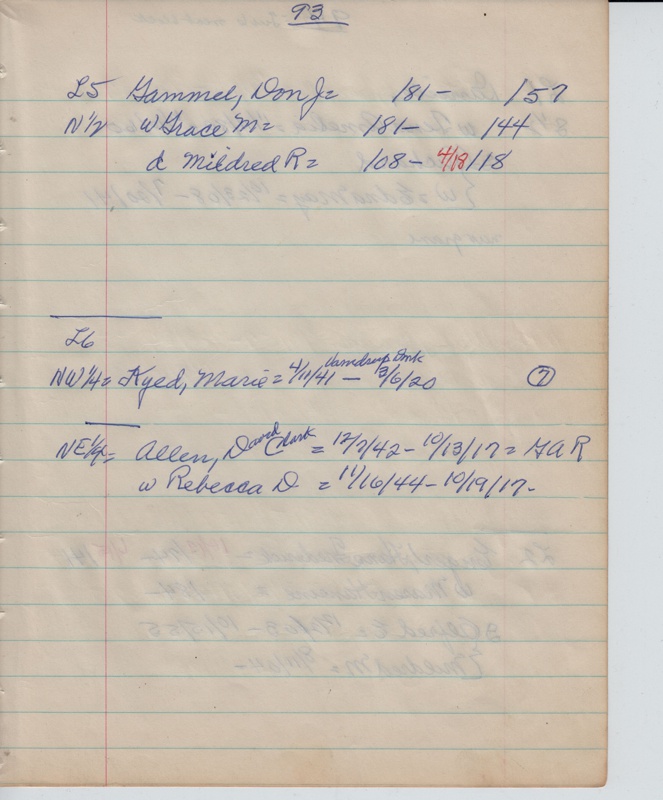 93
L5 Gammel, Don J= /81- /57
N 1/2 w Grace M= /81- /44
d Mildred R= /08- 4/18/18
L6
NW 1/4= Kyed, Marie = 4/11/41 Vamdrup Dmk - 3/6/20 (7)
NE 1/4= Allen, David Clark = 12/7/42- 10/13/17= GAR
w Rebecca D = 11/16/44- 10/19/17-